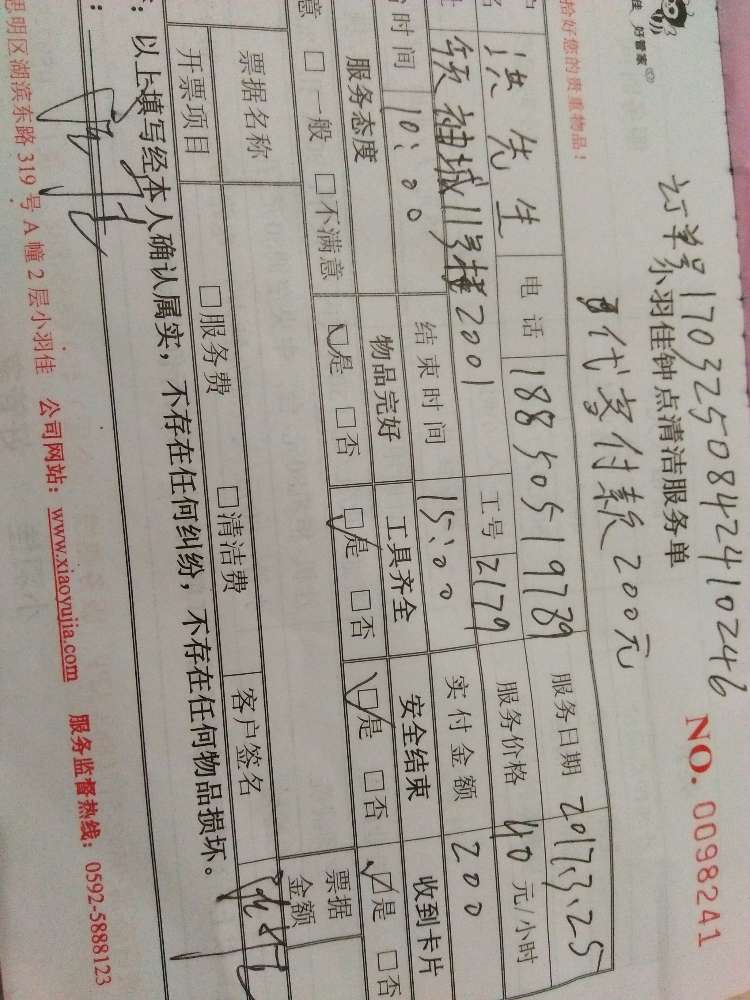 佳 好管家
订单号1703250842410246
小羽佳钟点清洁服务单
NO. 0098241
代发付款200元
拾好您的贵重物品!
洪先生 电话 18850519789 服务日期 2017.3.25
领袖城11号楼2001 工号 2179 服务价格 40 元/小时
时间 10:00 结束时间 15:00 实付金额 200
服务态度 物品完好 工具齐全 安全结束 收到卡片
意 □一般 □不满意 □是 □否 □是 □否 □是 □否 □是 □否
票据名称 票据金额
开票项目 □服务费 □清洁费 客户签名
:以上填写经本人确认属实,不存在任何纠纷,不存在任何物品损坏。
思明区湖滨东路 319 号 A 幢 2 层小羽佳 公司网站:www.xiaoyujia.com 服务监督热线:0592-5888123